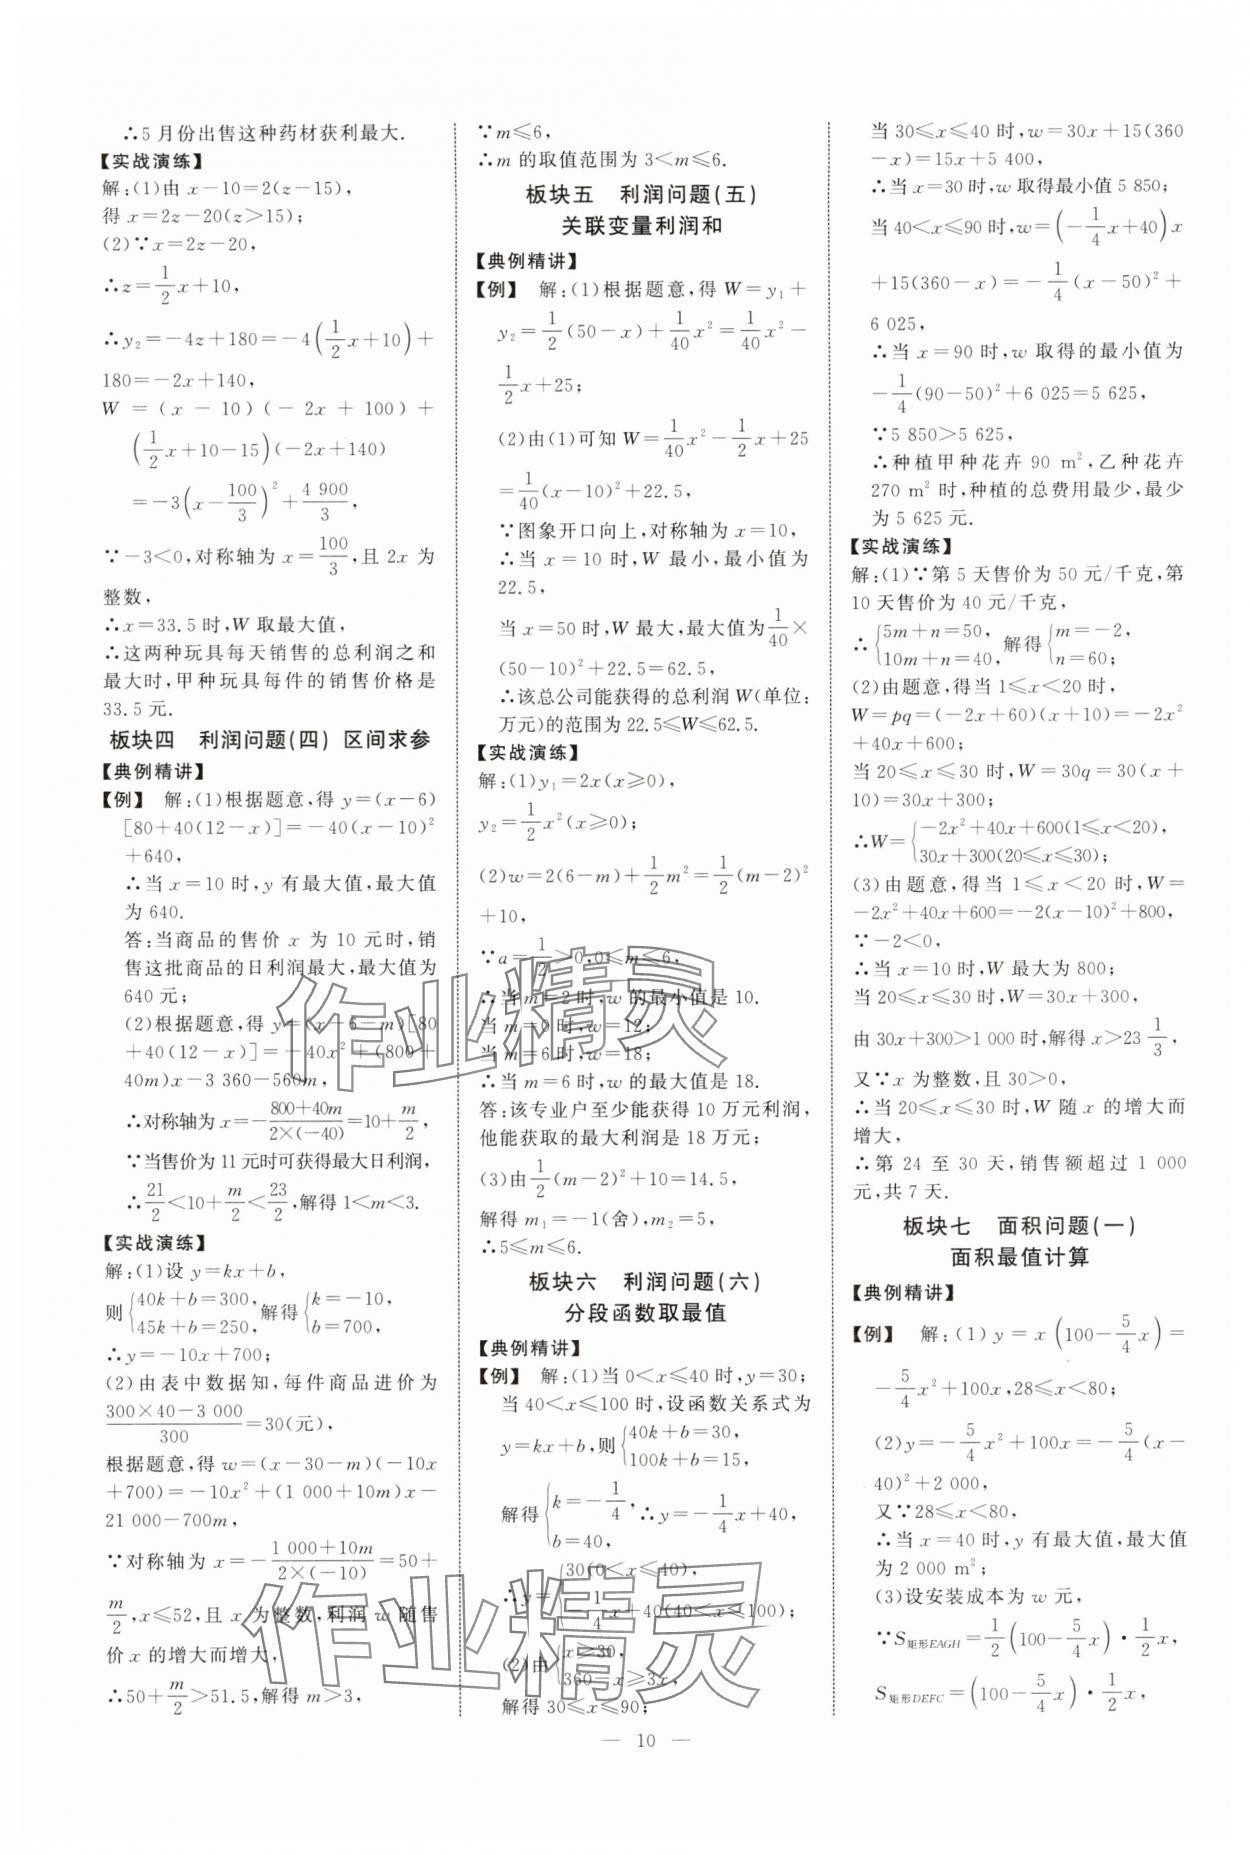 ∴5 月份出售这种药材获利最大.
【实战演练】
解:(1)由 x－10=2(z－15),
得 x=2z－20(z>15);
(2)∵x=2z－20,
∴z=1/2x+10,
∴y₂=－4z+180=－4(1/2x+10)+
180=－2x+140,
W =(x － 10)(－ 2x + 100)+
(1/2x+10－15)(－2x+140)
=－3(x－100/3)²+4 900/3,
∵－3<0,对称轴为 x=100/3,且 2x 为
整数,
∴x=33.5 时,W 取最大值,
∴这两种玩具每天销售的总利润之和
最大时,甲种玩具每件的销售价格是
33.5 元.
板块四 利润问题(四) 区间求参
【典例精讲】
【例】 解:(1)根据题意,得 y=(x－6)
[80+40(12－x)]=－40(x－10)²
+640,
∴当 x=10 时,y 有最大值,最大值
为 640.
答:当商品的售价 x 为 10 元时,销
售这批商品的日利润最大,最大值为
640 元;
(2)根据题意,得 y=(x－6－m)[80
+40(12－x)]=－40x²+(800+
40m)x－3 360－560m,
∴对称轴为 x=－800+40m/2×(－40)=10+m/2,
∵当售价为 11 元时可获得最大日利润,
∴21/2<10+m/2<23/2,解得 1<m<3.
【实战演练】
解:(1)设 y=kx+b,
则{40k+b=300, 45k+b=250, 解得{k=－10, b=700,
∴y=－10x+700;
(2)由表中数据知,每件商品进价为
300×40－3 000/300=30(元),
根据题意,得 w=(x－30－m)(－10x
+700)=－10x²+(1 000+10m)x－
21 000－700m,
∵对称轴为 x=－1 000+10m/2×(－10)=50+
m/2,x≤52,且 x 为整数,利润 w 随售
价 x 的增大而增大,
∴50+m/2>51.5,解得 m>3,
∵m≤6,
∴m 的取值范围为 3<m≤6.
板块五 利润问题(五)
关联变量利润和
【典例精讲】
【例】 解:(1)根据题意,得 W=y₁+
y₂=1/2(50－x)+1/40x²=1/40x²－
1/2x+25;
(2)由(1)可知 W=1/40x²－1/2x+25
=1/40(x－10)²+22.5,
∵图象开口向上,对称轴为 x=10,
∴当 x=10 时,W 最小,最小值为
22.5,
当 x=50 时,W 最大,最大值为1/40×
(50－10)²+22.5=62.5,
∴该总公司能获得的总利润 W(单位:
万元)的范围为 22.5≤W≤62.5.
【实战演练】
解:(1)y₁=2x(x≥0),
y₂=1/2x²(x≥0);
(2)w=2(6－m)+1/2m²=1/2(m－2)²
+10,
∵a=1/2>0,0≤m≤6,
∴当 m=2 时,w 的最小值是 10.
当 m=0 时,w=12;
当 m=6 时,w=18;
∴当 m=6 时,w 的最大值是 18.
答:该专业户至少能获得 10 万元利润,
他能获取的最大利润是 18 万元;
(3)由1/2(m－2)²+10=14.5,
解得 m₁=－1(舍),m₂=5,
∴5≤m≤6.
板块六 利润问题(六)
分段函数取最值
【典例精讲】
【例】 解:(1)当 0<x≤40 时,y=30;
当 40<x≤100 时,设函数关系式为
y=kx+b,则{40k+b=30, 100k+b=15,
解得{k=－1/4, b=40, ∴y=－1/4x+40,
∴y={30(0<x≤40), －1/4x+40(40<x≤100);
(2)由{x≥30, 360－x≥3x,
解得 30≤x≤90;
当 30≤x≤40 时,w=30x+15(360
－x)=15x+5 400,
∴当 x=30 时,w 取得最小值 5 850;
当 40<x≤90 时,w=(－1/4x+40)x
+15(360－x)=－1/4(x－50)²+
6 025,
∴当 x=90 时,w 取得的最小值为
－1/4(90－50)²+6 025=5 625,
∵5 850>5 625,
∴种植甲种花卉 90 m²,乙种花卉
270 m² 时,种植的总费用最少,最少
为 5 625 元.
【实战演练】
解:(1)∵第 5 天售价为 50 元/千克,第
10 天售价为 40 元/千克,
∴{5m+n=50, 10m+n=40, 解得{m=－2, n=60;
(2)由题意,得当 1≤x<20 时,
W=pq=(－2x+60)(x+10)=－2x²
+40x+600;
当 20≤x≤30 时,W=30q=30(x+
10)=30x+300;
∴W={－2x²+40x+600(1≤x<20), 30x+300(20≤x≤30);
(3)由题意,得当 1≤x<20 时,W=
－2x²+40x+600=－2(x－10)²+800,
∵－2<0,
∴当 x=10 时,W 最大为 800;
当 20≤x≤30 时,W=30x+300,
由 30x+300>1 000 时,解得 x>23 1/3,
又∵x 为整数,且 30>0,
∴当 20≤x≤30 时,W 随 x 的增大而
增大,
∴第 24 至 30 天,销售额超过 1 000
元,共 7 天.
板块七 面积问题(一)
面积最值计算
【典例精讲】
【例】 解:(1)y=x(100－5/4x)=
－5/4x²+100x,28≤x<80;
(2)y=－5/4x²+100x=－5/4(x－
40)²+2 000,
又∵28≤x<80,
∴当 x=40 时,y 有最大值,最大值
为 2 000 m²;
(3)设安装成本为 w 元,
∵S矩形EAGH=1/2(100－5/4x)·1/2x,
S矩形DEFC=(100－5/4x)·1/2x,
— 10 —
作业精灵
作业精灵